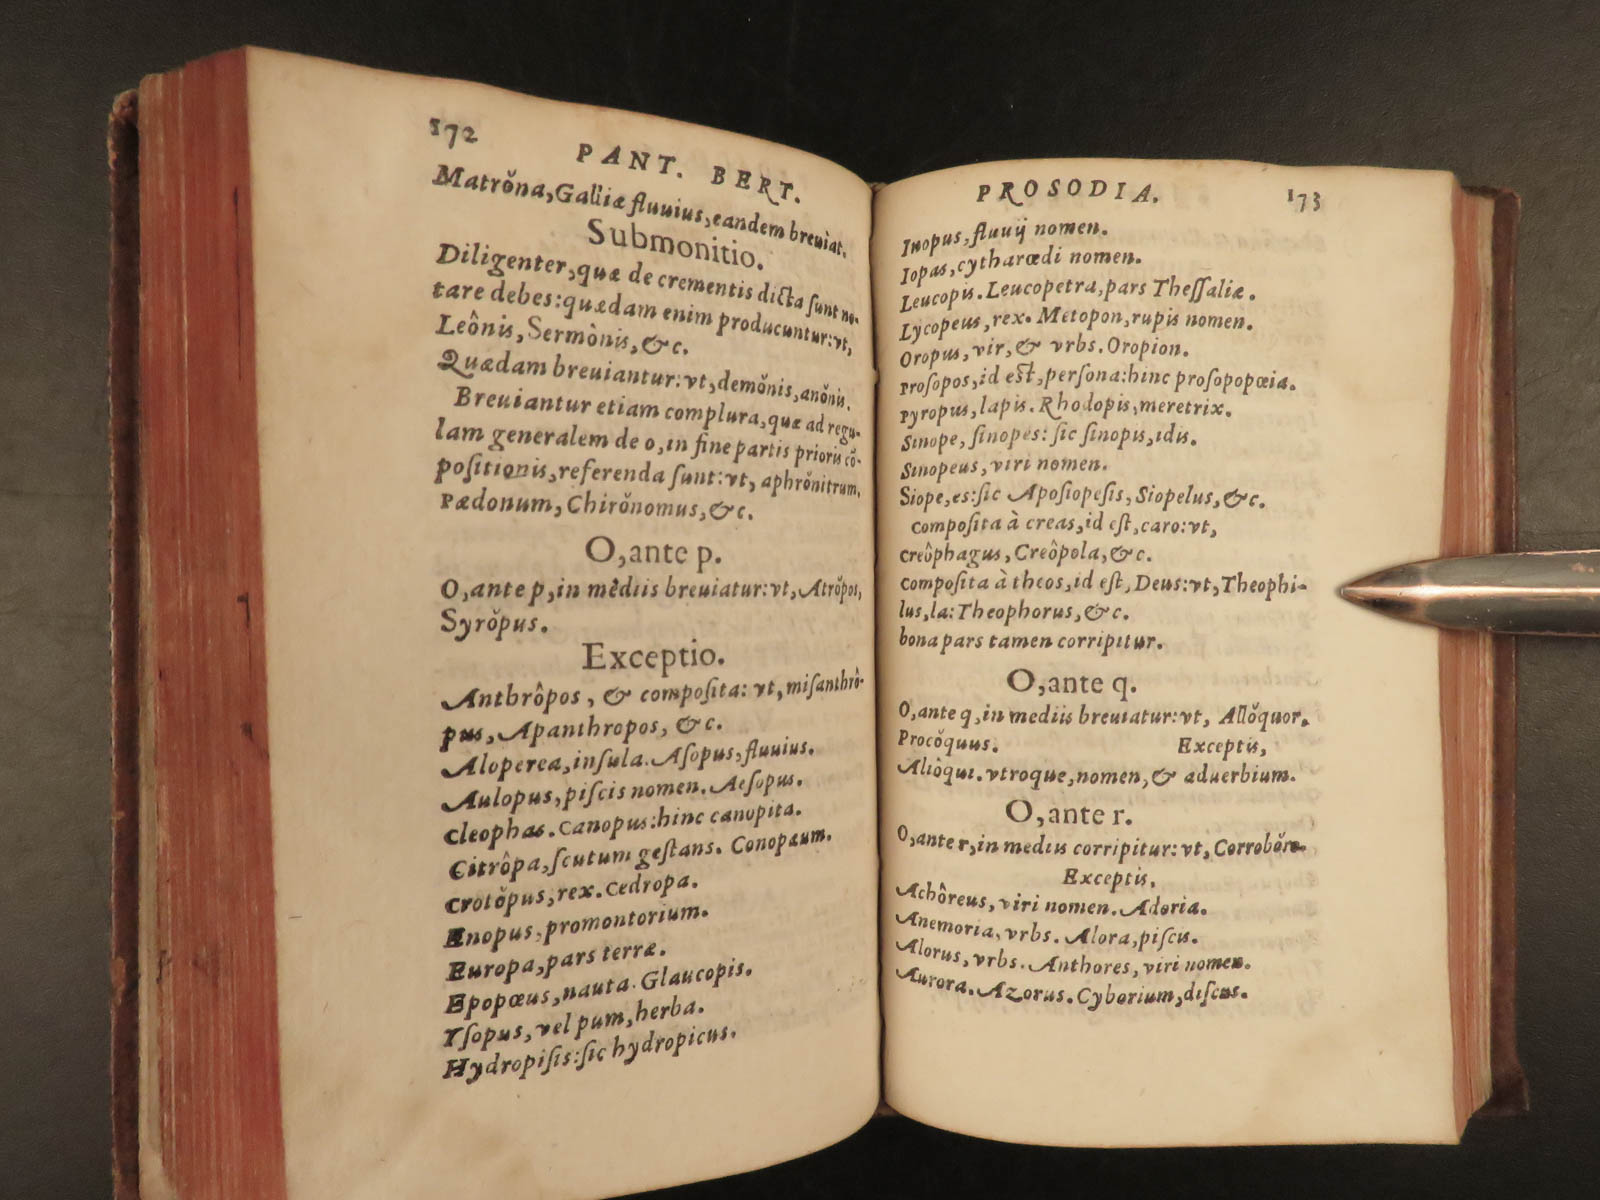 172
PANT. BERT.
Matrŏna, Galliæ fluuius, eandem breuiat.
Submonitio.
Diligenter, quæ de crementis dicta sunt no-
tare debes: quædam enim producuntur: vt,
Leônis, Sermònis, &c.
Quædam breuiantur: vt, demŏnis, anŏnis.
Breuiantur etiam complura, quæ ad regu-
lam generalem de o, in fine partis prioris cō-
positionis, referenda sunt: vt, aphrŏnitrum,
Pædonum, Chirŏnomus, &c.
O, ante p.
O, ante p, in mediis breuiatur: vt, Atrŏpos,
Syrŏpus.
Exceptio.
Anthrôpos, & composita: vt, misanthrô-
pus, Apanthropos, &c.
Aloperea, insula. Asopus, fluuius.
Aulopus, piscis nomen. Aesopus.
Cleophas. Canopus: hinc canopita.
Citrôpa, scutum gestans. Conopæum.
Crotŏpus, rex. Cedropa.
Enopus, promontorium.
Europa, pars terræ.
Epopœus, nauta. Glaucopis.
Ysopus, vel pum, herba.
Hydropisis: sic hydropicus.
PROSODIA.
173
Inopus, fluuij nomen.
Iopas, cytharœdi nomen.
Leucopis. Leucopetra, pars Thessaliæ.
Lycopeus, rex. Metopon, rupis nomen.
Oropus, vir, & vrbs. Oropion.
Prosopos, id est, persona: hinc prosopopœia.
Pyropus, lapis. Rhodopis, meretrix.
Sinope, sinopes: sic sinopis, idis.
Sinopeus, viri nomen.
Siope, es: sic Aposiopesis, Siopelus, &c.
Composita à creas, id est, caro: vt,
creôphagus, Creôpola, &c.
Composita à theos, id est, Deus: vt, Theophi-
lus, la: Theophorus, &c.
bona pars tamen corripitur.
O, ante q.
O, ante q, in mediis breuiatur: vt, Allŏquor.
Procŏquus. Exceptis,
Aliôqui. vtroque, nomen, & aduerbium.
O, ante r.
O, ante r, in mediis corripitur: vt, Corrobŏro.
Exceptis,
Achôreus, viri nomen. Adoria.
Anemoria, vrbs. Alora, piscis.
Alorus, vrbs. Anthores, viri nomen.
Aurora. Azorus. Cyborium, discus.